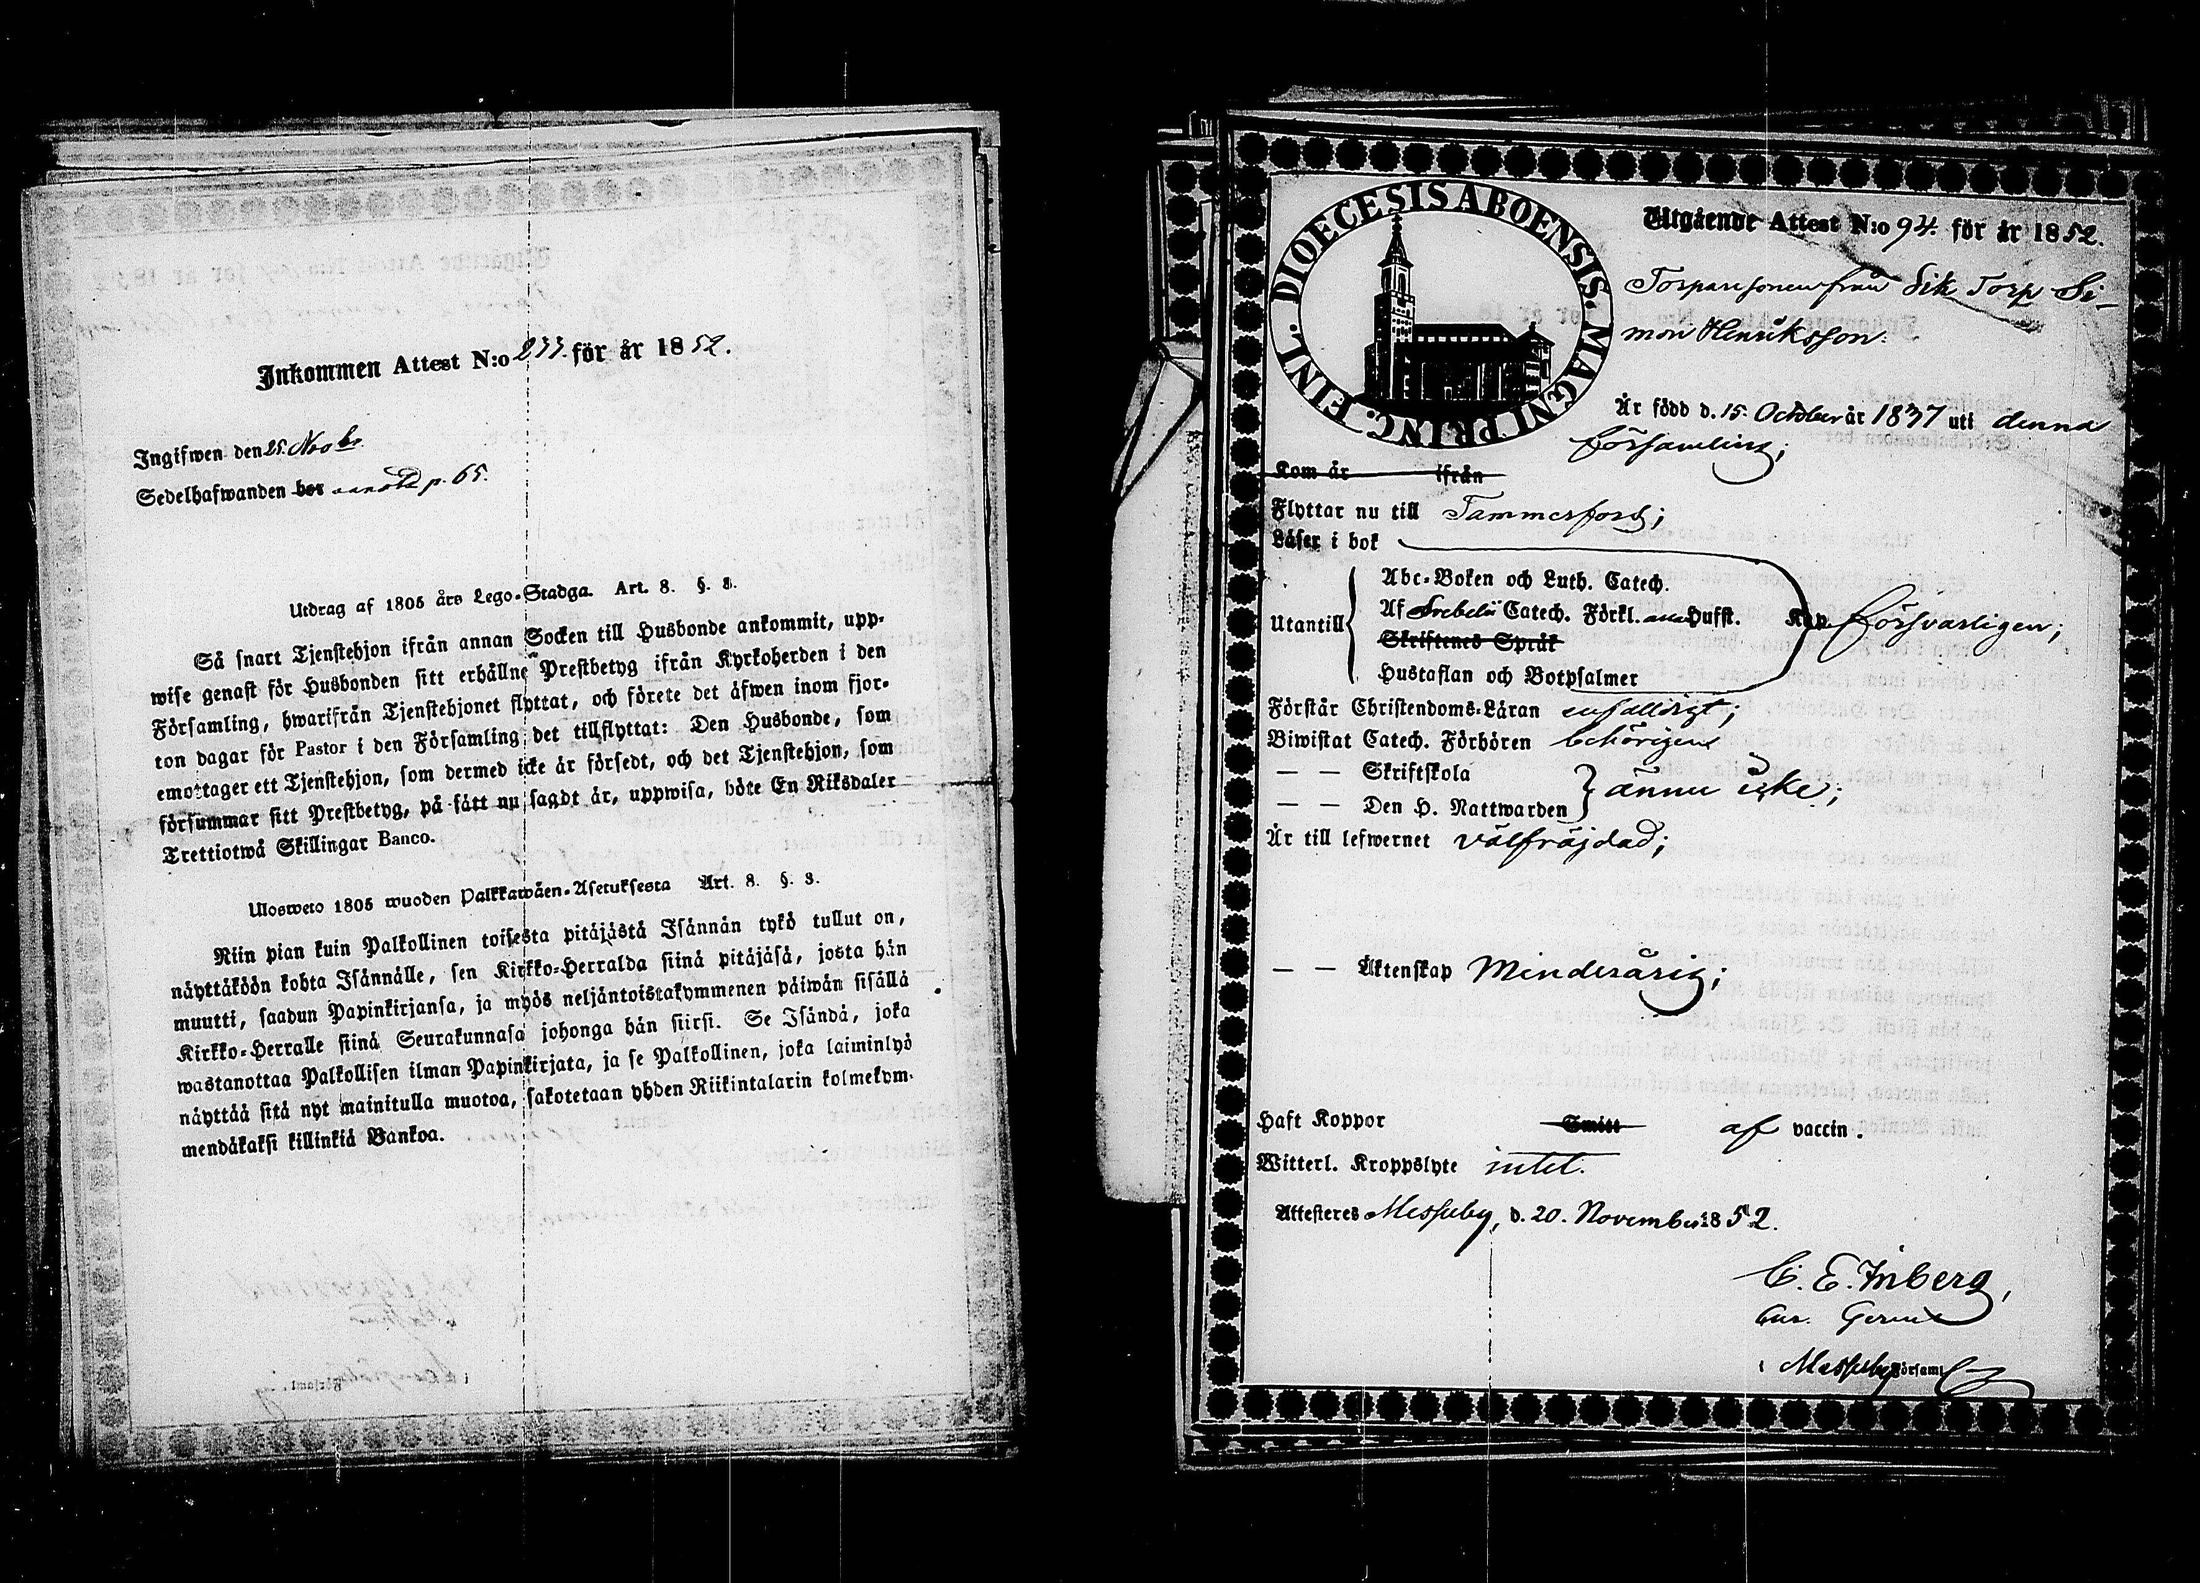 Inkommen Attest N:o 277. för år 1852.
Ingifwen den 25. Novbr
Sedelhafwanden bor p. 65.
Utdrag af 1805 års Lego-Stadga. Art. 8. §. 3.
Så snart Tjenstehjon ifrån annan Socken till Husbonde ankommit, upp-
wise genast för Husbonden sitt erhållne Prestbetyg ifrån Kyrkoherden i den
Församling, hwarifrån Tjenstehjonet flyttat, och förete det äfwen inom fjor-
ton dagar för Pastor i den Församling det tillflyttat: Den Husbonde, som
emottager ett Tjenstehjon, som dermed icke är försedt, och det Tjenstehjon, som
försummar sitt Prestbetyg, på sätt nu sagdt är, uppwisa, böte En Riksdaler
Trettiotwå Skillingar Banco.
Ulosweto 1805 wuoden Palkkawäen-Asetuksesta Art. 8. §. 3.
Niin pian kuin Palkollinen toisesta pitäjästä Isännän tykö tullut on,
näyttäköön kohta Isännälle, sen Kirkko-Herralda siinä pitäjäsä, josta hän
muutti, saadun Papinkirjansa, ja myös neljäntoistakymmenen päiwän sisällä
Kirkko-Herralle siinä Seurakunnasa johonga hän siirsi. Se Isändä, joka
wastanottaa Palkollisen ilman Papinkirjata, ja se Palkollinen, joka laiminlyö
näyttää sitä nyt mainitulla muotoa, sakotetaan yhden Riikintalarin kolmekym-
mendäkaksi killinkiä Bankoa.
DIOECESIS ABOENSIS. MAGNI PRINC. FINL.
Utgående Attest N:o 94. för år 1852.
Torparesonen från Sik Torp Si-
mon Henriksson.
Är född d. 15. October år 1837 uti denna
församling;
Kom år ifrån
Flyttar nu till Tammerfors;
Läser i bok
Utantill
Abc-Boken och Luth. Catech.
Af Svebelii Catech. Förkl. Husst.
Skriftenes Språk
Hustaflan och Botpsalmer
försvarligen;
Förstår Christendoms-Läran enfalldigt;
Biwistat Catech. Förhören behörigen
— — Skriftskola
— — Den H. Nattwarden
ännu icke;
Är till lefwernet välfräjdad;
— — Äktenskap Minderårig;
Haft Koppor Smitt af vaccin.
Witterl. Kroppslyte intet.
Attesteres Messuby, d. 20. November 1852.
C. E. Inberg,
i Messuby Församl.